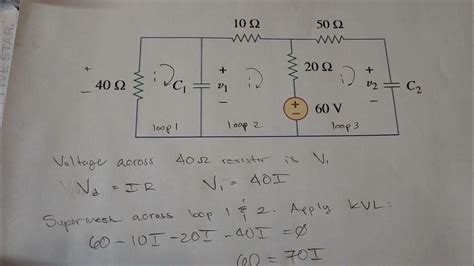 TIVE STAR.
10 Ω
50 Ω
+
40 Ω
i
C1
+
v1
i
20 Ω
+
60 V
i
+
v2
C2
−
−
−
loop 1
loop 2
loop 3
Voltage across 40Ω resistor is V1
Vd = IR V1 = 40I
Supermesh across loop 1 & 2. Apply KVL:
60 - 10I - 20I - 40I = 0
60 = 70I